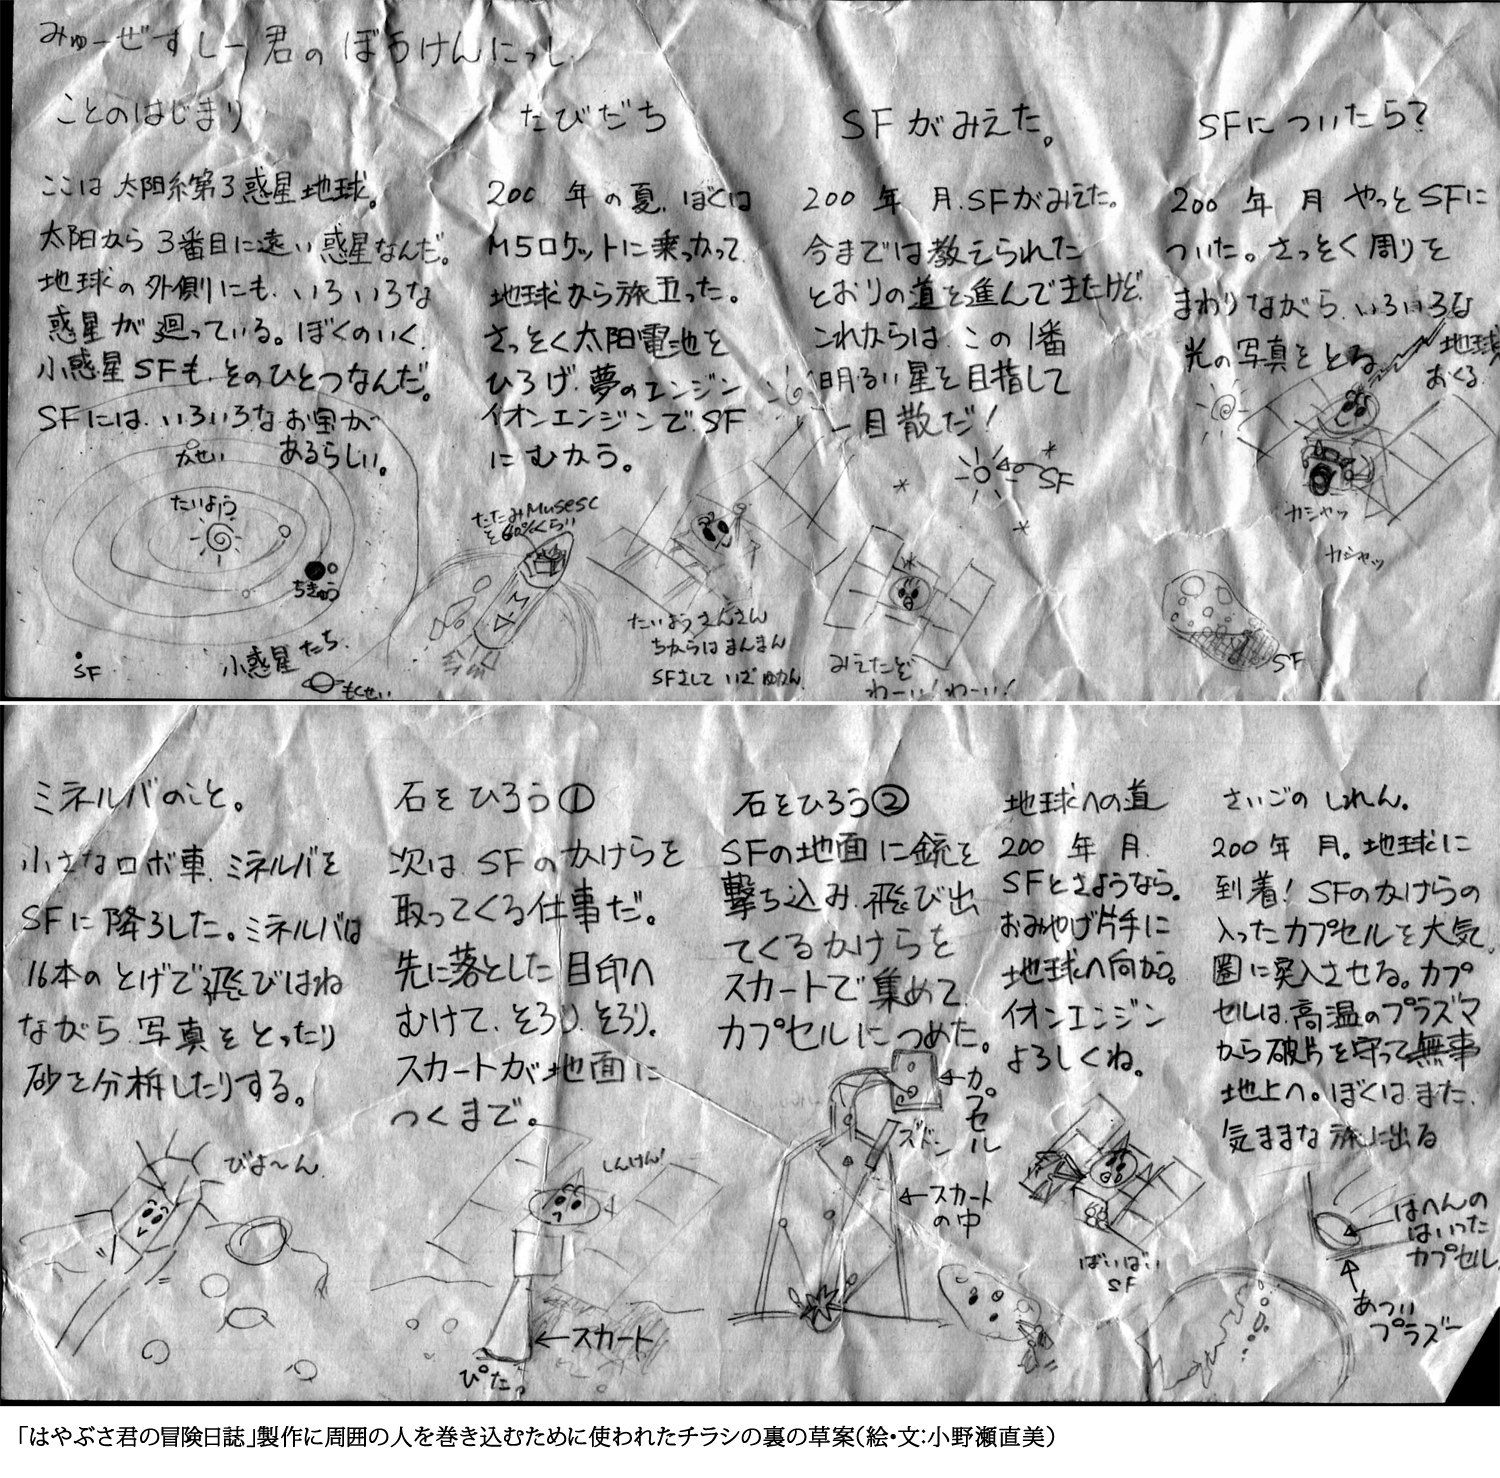 みゅーぜすしー君のぼうけんにっし
ことのはじまり
ここは太陽系第3惑星地球。
太陽から3番目に遠い惑星なんだ。
地球の外側にも、いろいろな
惑星が廻っている。ぼくのいく、
小惑星SFも、そのひとつなんだ。
SFには、いろいろなお宝が
あるらしい。
かせい
たいよう
ちきゅう
SF
小惑星たち
もくせい
たびだち
200 年の夏、ぼくは
M5ロケットに乗っかって、
地球から旅立った。
さっそく太陽電池を
ひろげ、夢のエンジン
イオンエンジンで、SF
にむかう。
たたみMusesC
を60%くらい
M
V
たいようさんさん
ちからはまんまん
SFさして いざゆかん
SFがみえた。
200 年 月、SFがみえた。
今までは教えられた
とおりの道を進んできたけど、
これからは、この1番
明るい星を目指して
一目散だ!
SF
みえたぞ
わーい!わーい!
SFについたら?
200 年 月 やっとSFに
ついた。さっそく周りを
まわりながら、いろいろな
光の写真をとる
地球へ
おくる
カシャッ
カシャッ
SF
ミネルバのこと。
小さなロボ車、ミネルバを
SFに降ろした。ミネルバは
16本のとげで飛びはね
ながら、写真をとったり
砂を分析したりする。
びよ〜ん
石をひろう①
次は、SFのかけらを
取ってくる仕事だ。
先に落とした目印へ
むけて、そろり、そろり。
スカートが地面に
つくまで。
しんけん!
←スカート
ぴたっ
石をひろう②
SFの地面に銃を
撃ち込み、飛び出
てくるかけらを
スカートで集めて、
カプセルにつめた。
←カプセル
ズドン
←スカート
の中
地球への道
200 年 月、
SFとさようなら。
おみやげ片手に
地球へ向かう。
イオンエンジン
よろしくね。
ばいばい
SF
さいごのしれん。
200 年 月。地球に
到着!SFのかけらの
入ったカプセルを大気
圏に突入させる。カプ
セルは、高温のプラズマ
から破片を守って無事
地上へ。ぼくは、また、
気ままな旅に出る
はへんの
はいった
カプセル
あつい
プラズマ
「はやぶさ君の冒険日誌」製作に周囲の人を巻き込むために使われたチラシの裏の草案(絵・文:小野瀬直美)